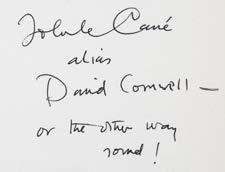 John le Carré
alias
David Cornwell —
or the other way
round!